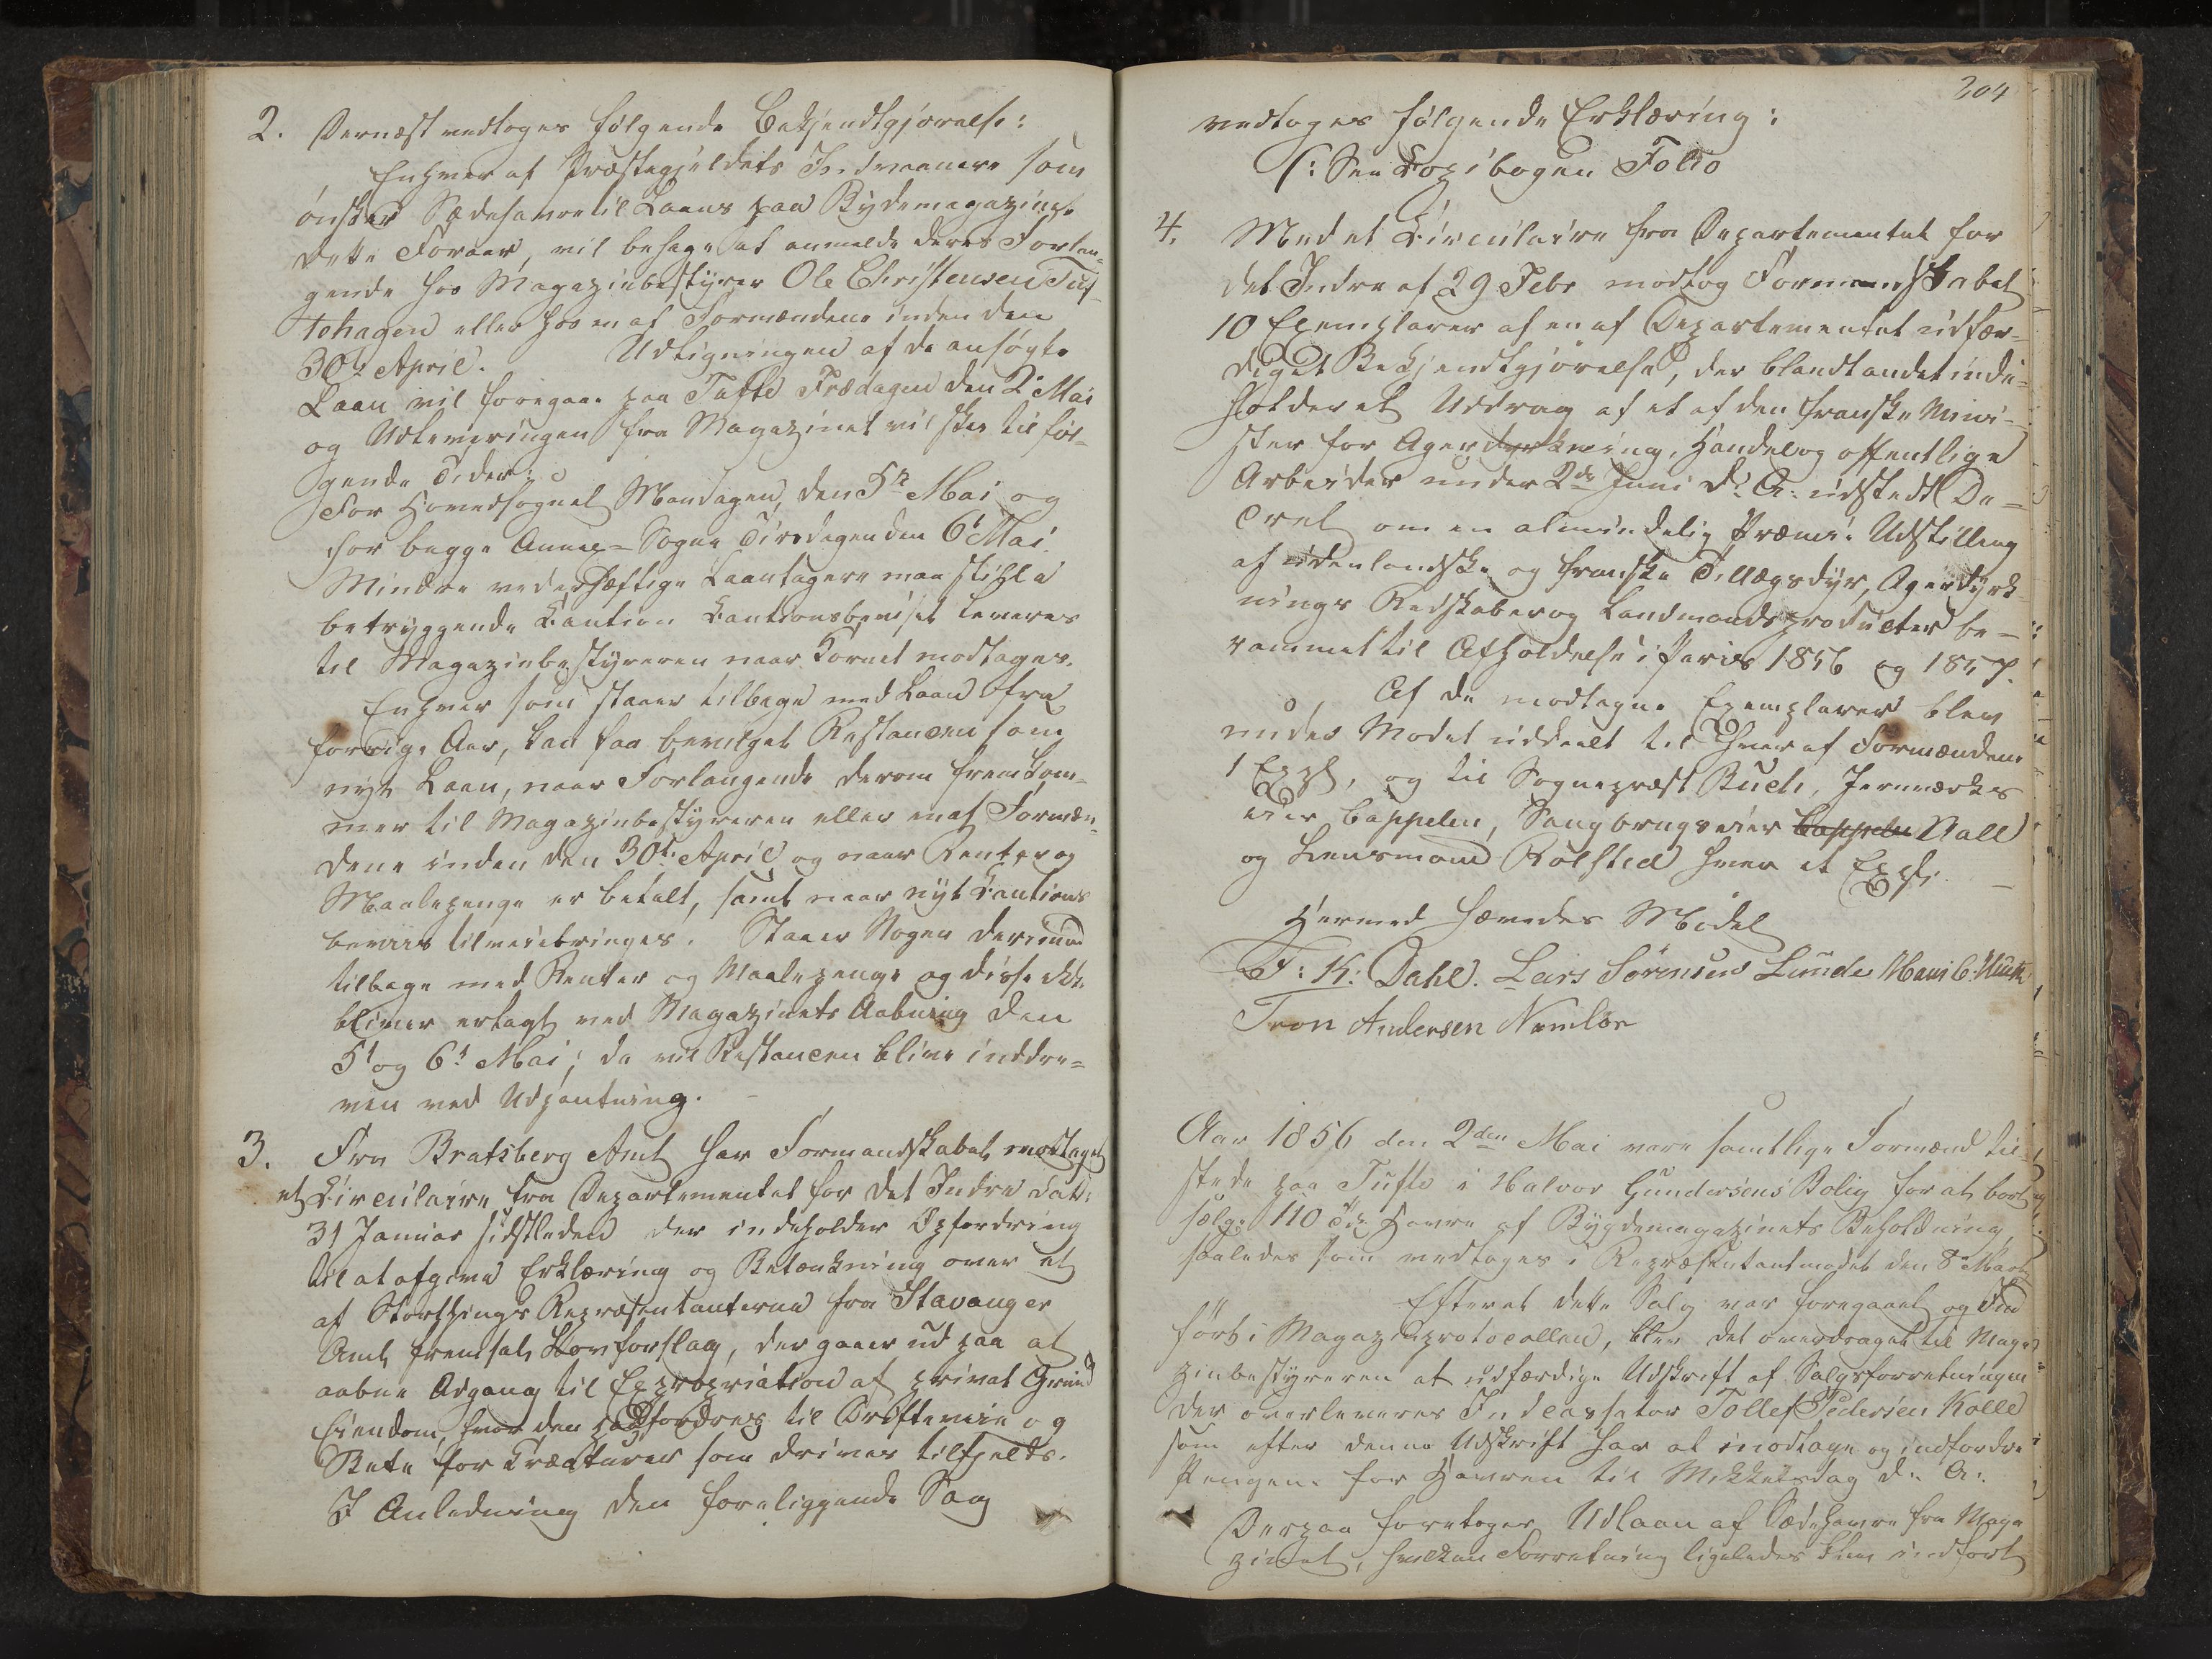 2. Dernæst vedtoges følgende Bekjendtgjørelse:
Enhver af Præstegjeldets Indvaanere som
ønsker Sædehavre til Laans paa Bydemagazinet
dette Foraar, vil behage at anmelde deres Forlan-
gende hos Magazinbestyrer Ole Christensen Tuf-
tehagen eller hos en af Formændene inden den
30te April. Udligningen af de ansøgte
Laan vil foregaae paa Tufte Fredagen den 2. Mai
og Udleveringen fra Magazinet vil skee til føl-
gende Tider:
For Hovedsognet Mandagen den 5te Mai og
for begge Annex-Sogne Tirsdagen den 6t Mai.
Mindre vederhæftige Laantagere maa stille
betryggende Kaution Kautionsbeviset leveres
til Magazinbestyreren naar Kornet modtages.
Enhver som staaer tilbage med Laan fra
forrige Aar, kan faa bevilget Restancen som
nyt Laan, naar Forlangende derom fremkom-
mer til Magazinbestyreren eller en af Formæn-
dene inden den 30te April og naar Renter og
Maalepenge er betalt, samt naar nyt Kautions
beviis tilveiebringes. Staaer Nogen derimod
tilbage med Renter og Maalepenge og disse ikke
bliver erlagt ved Magazinets Aabning den
5t og 6t Mai, da vil Restancen blive inddre-
ven ved Udpantning. -
3. Fra Bratsberg Amt har Formandskabet modtaget
et Circulaire fra Departementet for det Indre dat:
31 Januar sidstleden der indeholder Opfordring
til at afgive Erklæring og Betænkning over et
af Storthings Repræsentanterne fra Stavanger
Amt fremsat Lovforslag, der gaaer ud paa at
aabne Adgang til Expropriation af privat Grund
Eiendom, hvor den udfordres til Drifteveie og
Beite for Kræature som drives tilfjelds.
I Anledning den foreliggende Sag
204
vedtoges følgende Erklæring:
/: See Kopibogen Folio
4. Med et Circulaire fra Departementet for
det Indre af 29 Febr modtog Formandskabet
10 Exemplarer af en af Departementet udfær-
diget Bekjendtgjørelse, der blandt andet inde-
holder et Uddrag af et af den franske Mini-
ster for Agerdyrkning, Handel og offentlige
Arbeider under 2de Juni d. A. udstedt De-
cret om en almindelig Præmie Udstilling
af udenlandske og franske Tillægsdyr, Agerdyrk
nings Redskaber og Landmandsproducter be-
rammet til Afholdelse i Paris 1856 og 1857.
Af de modtagne Exemplarer blev
under Mødet uddeelt til hver af Formændene
1 Expl, og til Sognepræst Buch, Jernværks
eier Cappelen, Saugbrugseier Cappelen Vall
og Lensmand Rolstad hver et Expl. -
Hermed hævedes Mødet
F: K: Dahl. Lars Sørensen Lunde
Tron Andersen Namløs
Aar 1856 den 2den Mai vare samtlige Formænd til
stede paa Tufte i Halvor Gundersens Bolig for at bort
sælge 110 Tdr Havre af Bygdemagazinets Beholdning,
saaledes som vedtoges i Repræsentantmødet den 8 Marts
Efterat dette Salg var foregaaet og Ind
ført i Magazinprotocollen, blev det overdraget til Maga
zinbestyreren at udfærdige Udskrift af Salgsforretningen
der overleveres Indcassator Tollef Pedersen Kolle
som efter denne Udskrift har at modtage og indfordre
Pengene for Havren til Mikkelsdag d. A.
Derpaa foretoges Udlaan af Sædehavre fra Maga
zinet, hvilken Forretning ligeledes blev indført